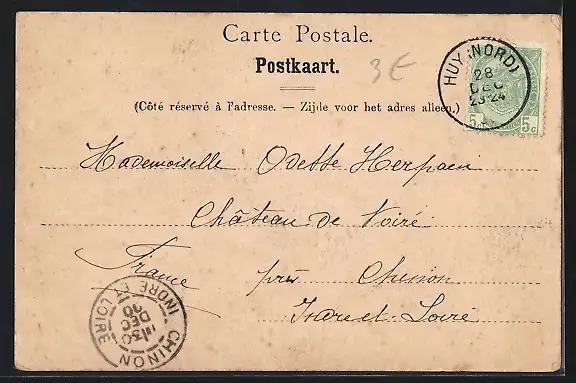 Carte Postale.
Postkaart.
3 €
(Côté réservé à l'adresse. — Zijde voor het adres alleen.)
HUY (NORD)
28
DEC
23-24
5c 5c
Mademoiselle Odette Herpain
Château de Noiré
France près Chinon
Indre-et-Loire
CHINON
INDRE ET LOIRE
30
DEC
00